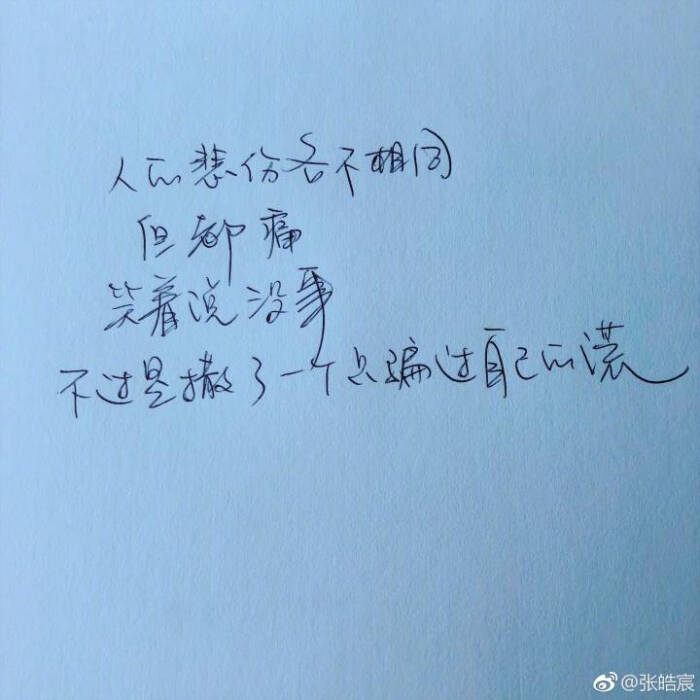 人的悲伤各不相同
但都痛
笑着说没事
不过是撒了一个只骗过自己的谎
@张皓宸